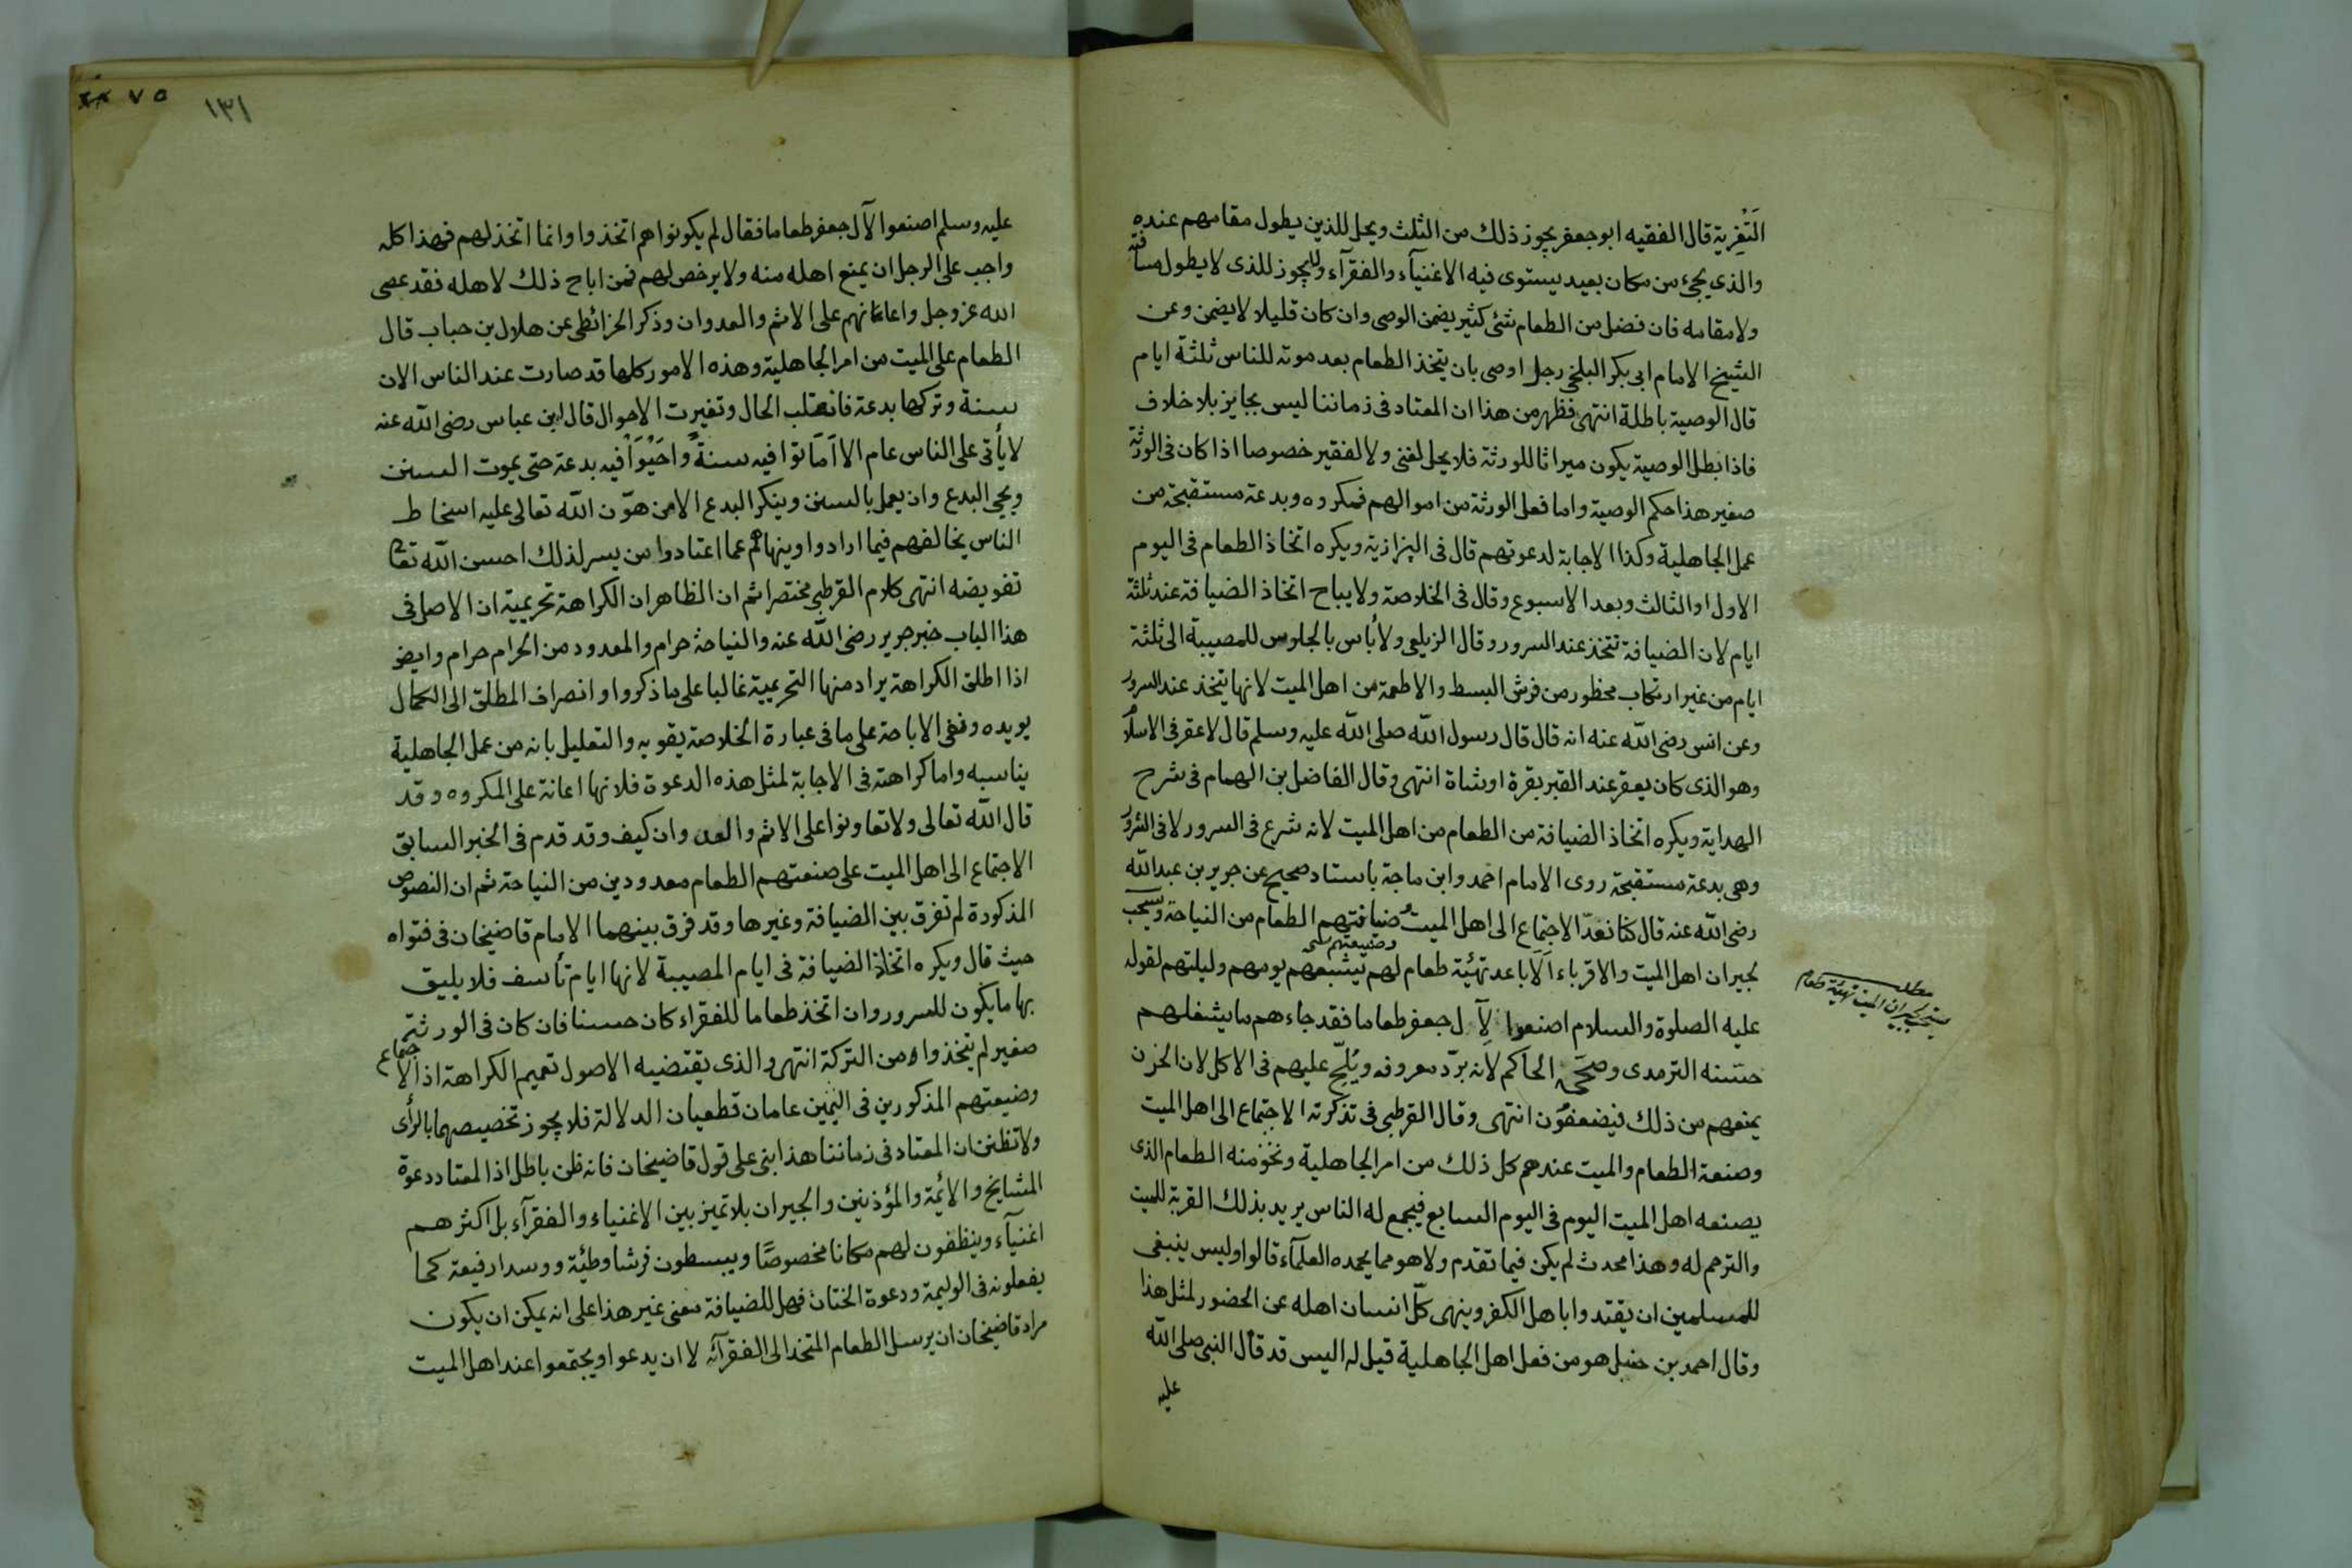 التعزية قال الفقيه ابو جعفر يجوز ذلك من الثلث ويحل للذين يطول مقامهم عنده
والذى يجئ من مكان بعيد يستوى فيه الاغنيآء والفقرآء ولا يجوز للذى لا يطول مسافته
ولا مقامه فان فضل من الطعام شئ كثير يضمن الوصى وان كان قليلا لا يضمن وعن
الشيخ الامام ابى بكر البلخى رجل اوصى بان يتخذ الطعام بعد موته للناس ثلثة ايام
قال الوصية باطلة انتهى فظهر من هذا ان المعتاد فى زماننا ليس بجايز بلا خلاف
فاذا بطل الوصية يكون ميراثا للورثة فلا يحل لغنى ولا لفقير خصوصا اذا كان فى الورثة
صغير هذا حكم الوصية واما فعل الورثة من اموالهم فمكروه وبدعة مستقبحة من
عمل الجاهلية وكذا الاجابة لدعوتهم قال فى البزازية ويكره اتخاذ الطعام فى اليوم
الاول او الثالث وبعد الاسبوع وقال فى الخلاصة ولا يباح اتخاذ الضيافة عند ثلثة
ايام لان الضيافة تتخذ عند السرور وقال الزيلعى ولا بأس بالجلوس للمصيبة الى ثلثة
ايام من غير ارتكاب محظور من فرش البسط والاطعمة من اهل الميت لانها تتخذ عند السرور
وعن انس رضى الله عنه انه قال قال رسول الله صلى الله عليه وسلم قال لا عقر فى الاسلام
وهو الذى كان يعقر عند القبر بقرة او شاة انتهى وقال الفاضل بن الهمام فى شرح
الهداية ويكره اتخاذ الضيافة من الطعام من اهل الميت لانه شرع فى السرور لا فى الشرور
وهى بدعة مستقبحة روى الامام احمد وابن ماجة باسناد صحيح عن جرير بن عبد الله
رضى الله عنه قال كنا نعدّ الاجتماع الى اهل الميت وضيافتهم الطعام من النياحة ويستحب
وصنيعتهم
لجيران اهل الميت والاقرباء الاباعد تهئية طعام لهم يشبعهم يومهم وليلتهم لقوله
عليه الصلوة والسلام اصنعوا لآل جعفر طعاما فقد جاءهم ما يشغلهم
حسنه الترمدى وصححه الحاكم لانه برّ ومعروف ويُلِحّ عليهم فى الاكل لان الحزن
يمنعهم من ذلك فيضعفون انتهى وقال القرطبى فى تذكرته الاجتماع الى اهل الميت
وصنعة الطعام والميت عندهم كل ذلك من امر الجاهلية ونحو منه الطعام الذى
يصنعه اهل الميت اليوم فى اليوم السابع فيجمع له الناس يريد بذلك القربة للميت
والترحم له وهذا محدث لم يكن فيما تقدم ولا هو مما يحمده العلمآء قالوا وليس ينبغى
للمسلمين ان يقتدوا باهل الكفر وينهى كلّ انسان اهله عن الحضور لمثل هذا
وقال احمد بن حنبل هو من فعل اهل الجاهلية قيل له اليس قد قال النبى صلى الله
عليه
مطلب
يستحب لجيران الميت تهئية طعام
٧٥
١٣١
عليه وسلم اصنعوا لآل جعفر طعاما فقال لم يكونوا هم اتخذوا وانما اتخذ لهم فهذا كله
واجب على الرجل ان يمنع اهله منه ولا يرخص لهم فمن اباح ذلك لاهله فقد عصى
الله عز وجل واعانهم على الاثم والعدوان وذكر الخرائطى عن هلال بن حباب قال
الطعام على الميت من امر الجاهلية وهذه الامور كلها قد صارت عند الناس الان
سنة وتركها بدعة فانقلب الحال وتغيرت الاحوال قال ابن عباس رضى الله عنه
لا يأتى على الناس عام الا اَمَاتوا فيه سنةً واحيَوا فيه بدعة حتى يموت السنن
ويحيى البدع وان يعمل بالسنن وينكر البدع الا من هوّن الله تعالى عليه اسخاط
الناس يخالفهم فيما ارادوا وينهاهم عما اعتادوا من يسر لذلك احسن الله تعا
تفويضه انتهى كلام القرطبى مختصرا ثم ان الظاهر ان الكراهة تحريمية ان الاصل فى
هذا الباب خبر جرير رضى الله عنه والنياحة حرام والمعدود من الحرام حرام وايضا
اذا اطلق الكراهة يراد منها التحريمية غالبا على ما ذكروا وانصراف المطلق الى الكمال
يويده ونفى الاباحة على ما فى عبارة الخلاصة يقويه والتعليل بانه من عمل الجاهلية
يناسبه واما كراهته فى الاجابة لمثل هذه الدعوة فلانها اعانة على المكروه وقد
قال الله تعالى ولا تعاونوا على الاثم والعدوان كيف وقد قدم فى الخبر السابق
الاجتماع الى اهل الميت على صنعتهم الطعام معدودين من النياحة ثم ان النصوص
المذكورة لم تفرق بين الضيافة وغيرها وقد فرق بينهما الامام قاضيخان فى فتواه
حيث قال ويكره اتخاذ الضيافة فى ايام المصيبة لانها ايام تأسف فلا يليق
بها ما يكون للسرور وان اتخذ طعاما للفقراء كان حسنا فان كان فى الورثة
صغير لم يتخذوا من التركة انتهى والذى يقتضيه الاصول تعميم الكراهة اذ الاجتماع
وضيعتهم المذكورين فى عامان قطعيان الدلالة فلا يجوز تخصيصهما بالرأى
ولا تظنن ان المعتاد فى زماننا هذا بنى على قول قاضيخان فانه ظن باطل اذا لمعتاد دعوة
المشايخ والائمة والمؤذنين والجيران بلا تميز بين الاغنياء والفقرآء بل اكثرهم
اغنيآء وينظفون لهم مكانا مخصوصًا ويبسطون فرشا وطئية ووسدا رفيعة كما
يفعلونه فى الوليمة ودعوة الختان فهل للضيافة معنى غير هذا على انه يمكن ان يكون
مراد قاضيخان ان يرسل الطعام المتخذ الى الفقرآء لا ان يدعوا ويجتمعوا عند اهل الميت